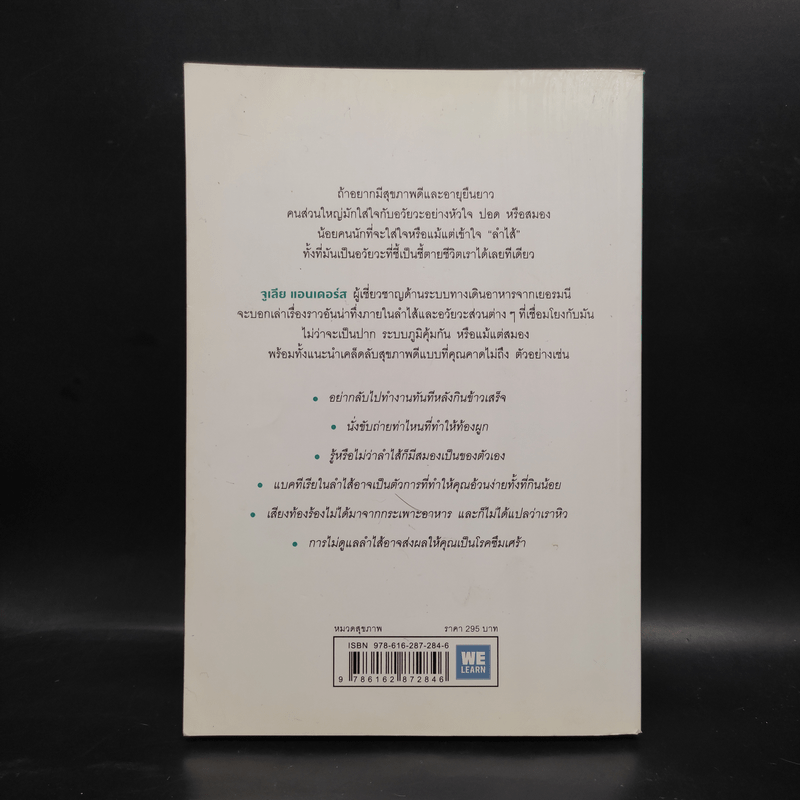 ถ้าอยากมีสุขภาพดีและอายุยืนยาว
คนส่วนใหญ่มักใส่ใจกับอวัยวะอย่างหัวใจ ปอด หรือสมอง
น้อยคนนักที่จะใส่ใจหรือแม้แต่เข้าใจ “ลำไส้”
ทั้งที่มันเป็นอวัยวะที่ชี้เป็นชี้ตายชีวิตเราได้เลยทีเดียว
จูเลีย แอนเดอร์ส ผู้เชี่ยวชาญด้านระบบทางเดินอาหารจากเยอรมนี
จะบอกเล่าเรื่องราวอันน่าทึ่งภายในลำไส้และอวัยวะส่วนต่าง ๆ ที่เชื่อมโยงกับมัน
ไม่ว่าจะเป็นปาก ระบบภูมิคุ้มกัน หรือแม้แต่สมอง
พร้อมทั้งแนะนำเคล็ดลับสุขภาพดีแบบที่คุณคาดไม่ถึง ตัวอย่างเช่น
• อย่ากลับไปทำงานทันทีหลังกินข้าวเสร็จ
• นั่งขับถ่ายท่าไหนที่ทำให้ท้องผูก
• รู้หรือไม่ว่าลำไส้ก็มีสมองเป็นของตัวเอง
• แบคทีเรียในลำไส้อาจเป็นตัวการที่ทำให้คุณอ้วนง่ายทั้งที่กินน้อย
• เสียงท้องร้องไม่ได้มาจากกระเพาะอาหาร และก็ไม่ได้แปลว่าเราหิว
• การไม่ดูแลลำไส้อาจส่งผลให้คุณเป็นโรคซึมเศร้า
หมวดสุขภาพ ราคา 295 บาท
ISBN 978-616-287-284-6
9 786162 872846
WE
LEARN